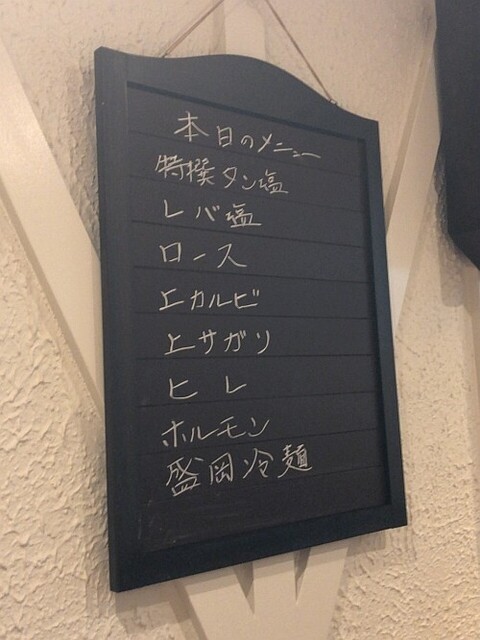 本日のメニュー
特撰タン塩
レバ塩
ロース
上カルビ
上サガリ
ヒレ
ホルモン
盛岡冷麺